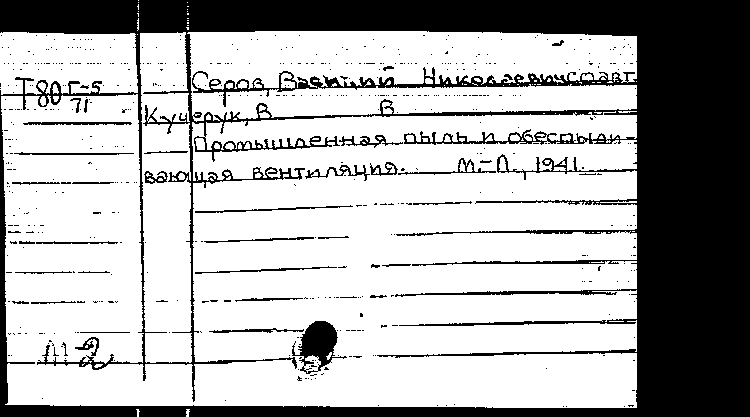 Т80 Г-5
71
Серов, Василий Николаевич соавт.
Кучерук, В В
Промышленная пыль и обеспыли-
вающая вентиляция. М.-Л., 1941.
М-2